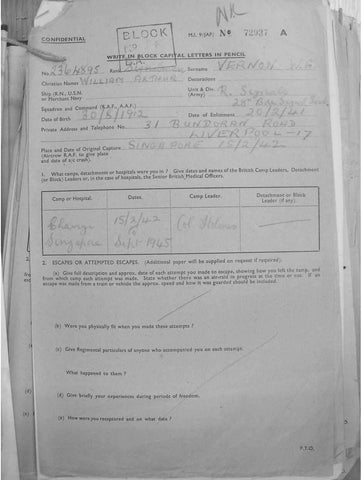 NK
CONFIDENTIAL
BLOCK
M.I. 9/JAP/ No 72937 A
WRITE IN BLOCK CAPITAL LETTERS IN PENCIL
No. 2364895 Rank Signalman Surname VERNON W.A.
Christian Names WILLIAM ARTHUR Decorations
Ship (R.N., U.S.N. or Merchant Navy Unit & Div. (Army) R. Signals
Squadron and Command (R.A.F., A.A.F.)
Date of Birth 30/8/1912 Date of Enlistment 20/2/41
Private Address and Telephone No. 31 BUNDORAN ROAD
LIVERPOOL-17
Place and Date of Original Capture SINGAPORE 15/2/42
(Aircrew R.A.F. to give place
and date of a/c crash).
1. What camps, detachments or hospitals were you in? Give dates and names of the British Camp Leaders, Detachment
(or Block) Leaders or, in the case of hospitals, the Senior British Medical Officers.
Camp or Hospital. Dates. Camp Leader. Detachment or Block Leader (if any).
Changi 15/2/42 Col Holmes
Singapore Sept 1945
2. ESCAPES OR ATTEMPTED ESCAPES. (Additional paper will be supplied on request if required).
(a) Give full description and approx. date of each attempt you made to escape, showing how you left the camp, and
from which camp each attempt was made. State whether there was an air-raid in progress at the time or not. If an
escape was made from a train or vehicle the approx. speed and how it was guarded should be included.
(b) Were you physically fit when you made these attempts?
(c) Give Regimental particulars of anyone who accompanied you on each attempt.
What happened to them?
(d) Give briefly your experiences during periods of freedom.
(e) How were you recaptured and on what date?
P.T.O.